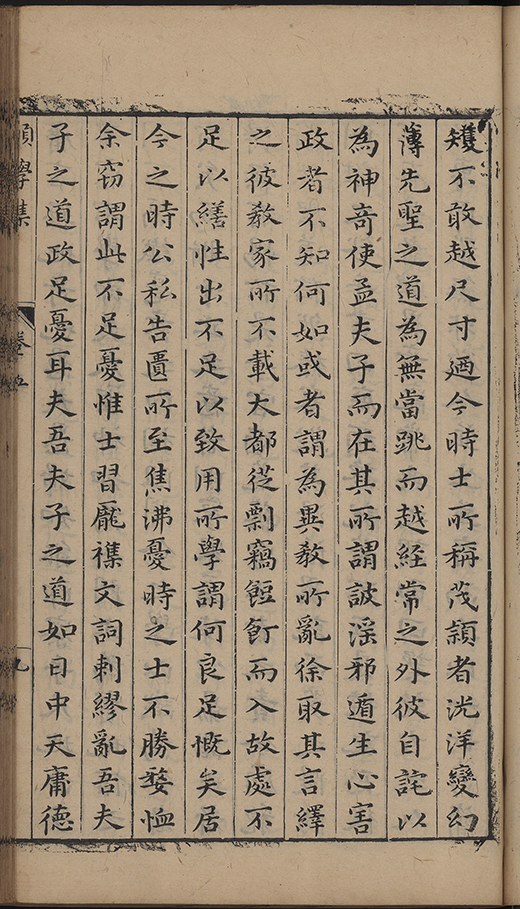 矱不敢越尺寸廼今時士所稱茂穎者洸洋變幻
薄先聖之道為無當跳而越經常之外彼自詫以
為神奇使孟夫子而在其所謂詖滛邪遁生心害
政者不知何如或者謂為異教所亂徐取其言繹
之彼教家所不載大都從剽竊饾飣而入故處不
足以繕性出不足以致用所學謂何良足慨矣居
今之時公私告匱所至焦沸憂時之士不勝嫠恤
余窃謂此不足憂惟士習厖襍文詞剌繆亂吾夫
子之道政足憂耳夫吾夫子之道如日中天庸德
學集
卷五
九